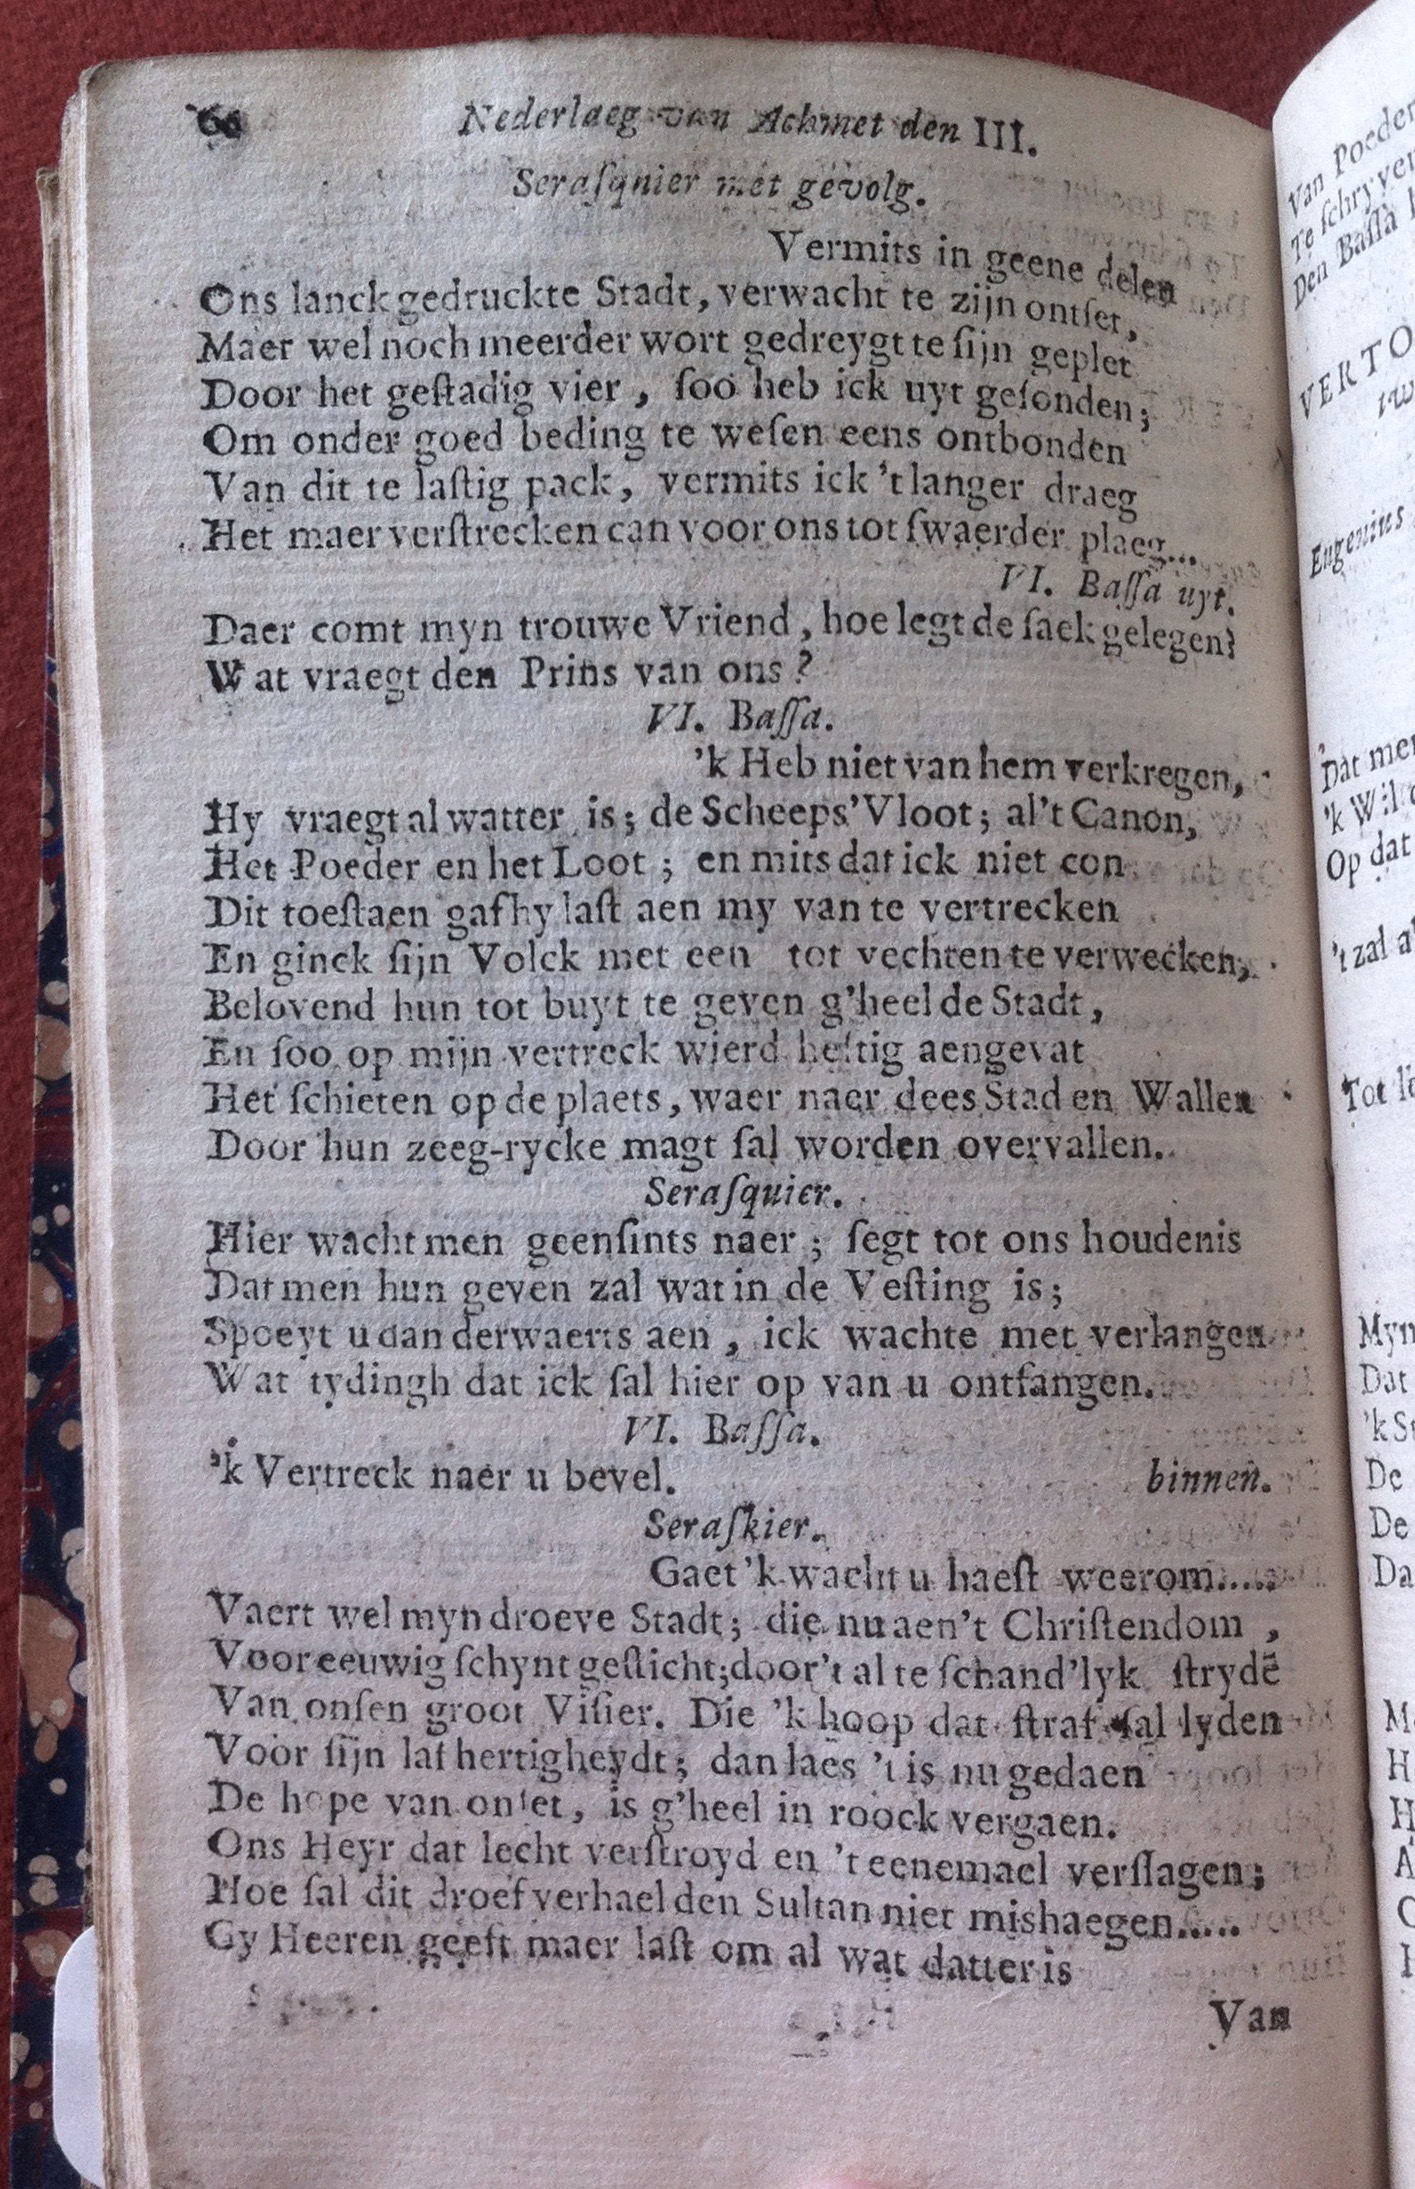 60 Nederlaeg van Achmet den III.
Seraſqnier met gevolg.
Vermits in geene delen
Ons lanck gedruckte Stadt, verwacht te zijn ontſet,
Maer wel noch meerder wort gedreygt te ſijn geplet
Door het geſtadig vier, ſoo heb ick uyt geſonden;
Om onder goed beding te weſen eens ontbonden
Van dit te laſtig pack, vermits ick 't langer draeg
Het maer verſtrecken can voor ons tot ſwaerder plaeg...
VI. Baſſa uyt.
Daer comt myn trouwe Vriend, hoe legt de ſaek gelegen?
Wat vraegt den Prins van ons?
VI. Baſſa.
'k Heb niet van hem verkregen,
Hy vraegt al watter is; de Scheeps'Vloot; al't Canon,
Het Poeder en het Loot; en mits dat ick niet con
Dit toeſtaen gaf hy laſt aen my van te vertrecken
En ginck ſijn Volck met een tot vechten te verwecken,
Belovend hun tot buyt te geven g'heel de Stadt,
En ſoo op mijn vertreck wierd heftig aengevat
Het ſchieten op de plaets, waer naer dees Stad en Wallen
Door hun zeeg-rycke magt ſal worden overvallen.
Seraſquier.
Hier wacht men geenſints naer; ſegt tot ons houdenis
Dat men hun geven zal wat in de Veſting is;
Spoeyt u dan derwaerts aen, ick wachte met verlangen
Wat tydingh dat ick ſal hier op van u ontfangen.
VI. Baſſa.
'k Vertreck naer u bevel. binnen.
Seraſkier.
Gaet 'k wacht u haeſt weerom.....
Vaert wel myn droeve Stadt; die nu aen't Chriſtendom,
Voor eeuwig ſchynt geſticht; door't al te ſchand'lyk ſtrydē
Van onſen groot Viſier. Die 'k hoop dat ſtraf ſal lyden
Voor ſijn laf hertigheydt; dan laes 't is nu gedaen
De hope van onſet, is g'heel in roock vergaen.
Ons Heyr dat lecht verſtroyd en 't eenemael verſlagen;
Hoe ſal dit droef verhael den Sultan niet mishaegen.....
Gy Heeren geeft maer laſt om al wat datter is
Van
Van Poeder
Te ſchryven
Den Baſſa
VERTO
Eugenius
Dat men
'k Wil
Op dat
't zal
Tot
Myn
Dat
'k
De
De
Da